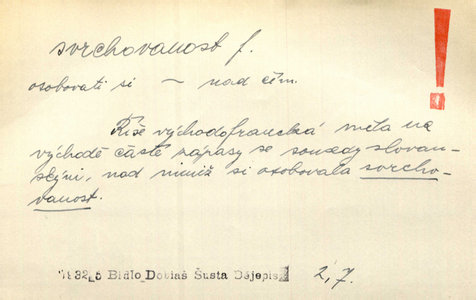 svrchovanost f.
osobovati si ~ nad čím.
Říše východofrancká měla na
východě časté zápasy se sousedy slovan-
skými, nad nimiž si osobovala svrcho-
vanost.
!
1932,5 Bidlo Dobiáš Šusta Dějepis 2,7.